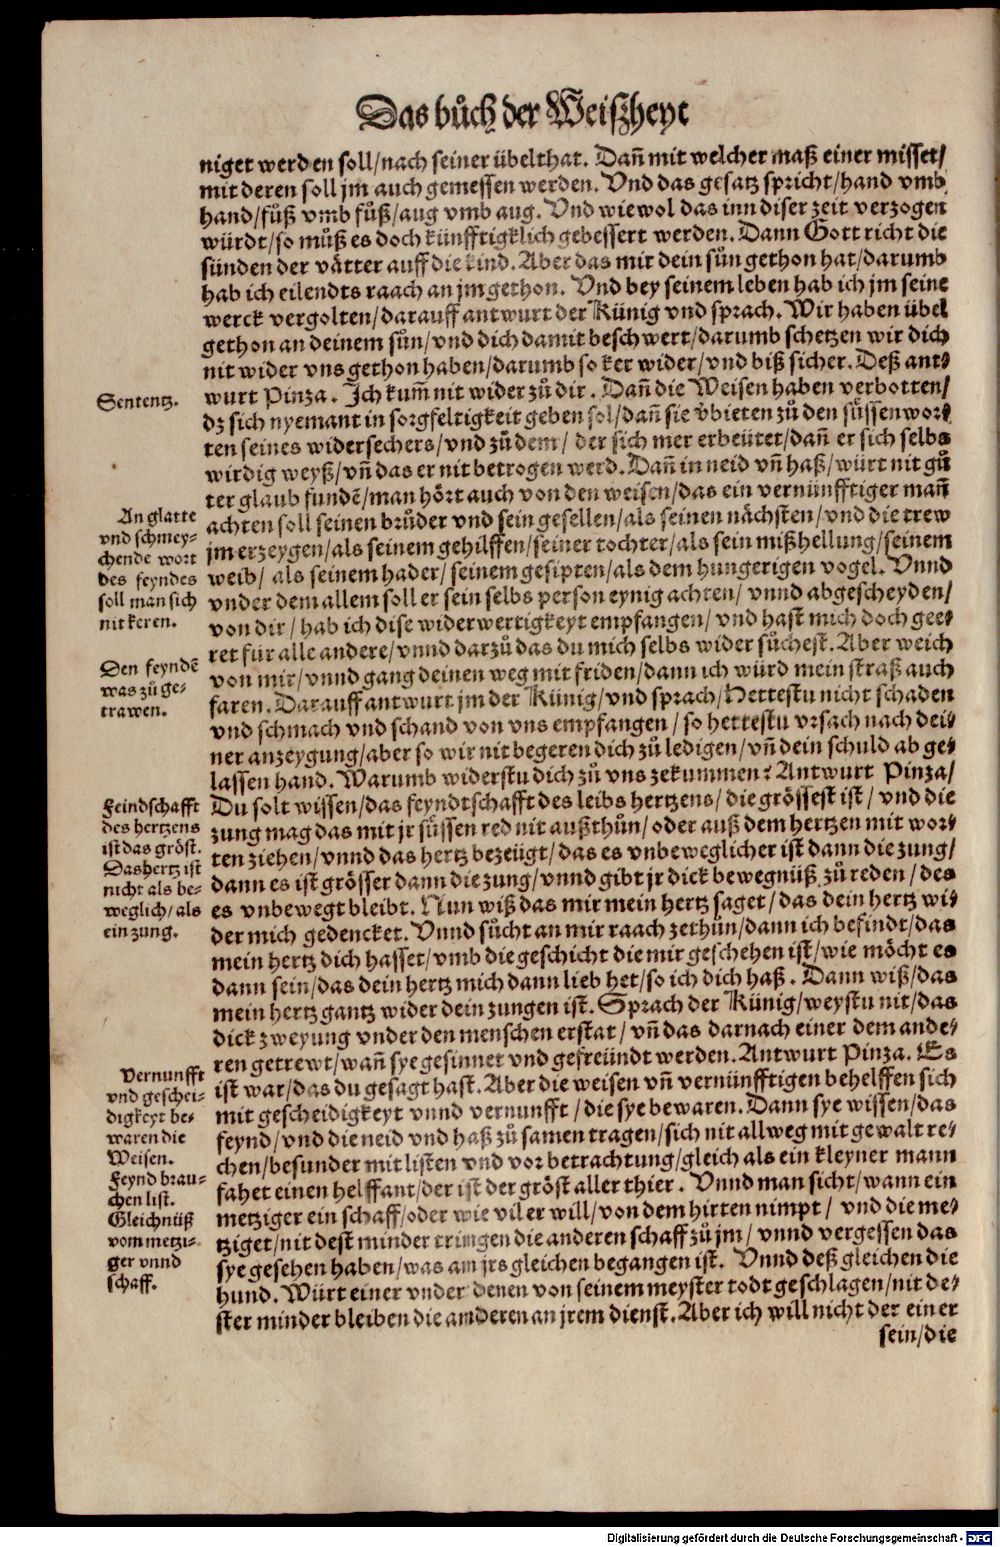 Das bůch der Weißheyt
niget werden soll/nach seiner übelthat. Dañ mit welcher maß einer misset/
mit deren soll jm auch gemessen werden. Vnd das gesatz spricht/hand vmb
hand/fůß vmb fůß/aug vmb aug. Vnd wiewol das inn diser zeit verzogen
würdt/so můß es doch künfftigklich gebessert werden. Dann Gott richt die
sünden der vätter auff die kind. Aber das mir dein sůn gethon hat/darumb
hab ich eilendts raach an jm gethon. Vnd bey seinem leben hab ich jm seine
werck vergolten/darauff antwurt der Künig vnd sprach. Wir haben übel
gethon an deinem sůn/vnd dich damit beschwert/darumb schetzen wir dich
nit wider vns gethon haben/darumb so ker wider/vnd biß sicher. Deß ant-
Sentenz.
wurt Pinza. Ich kum̃ nit wider zů dir. Dañ die Weisen haben verbotten/
dz sich nyemant in sorgfeltigkeit geben sol/dañ sie v̈bieten zů den süssen wor-
ten seines widersechers/vnd zů dem/ der sich mer erbeütet/dañ er sich selbs
wirdig weyß/vñ das er nit betrogen werd. Dañ in neid vñ haß/würt nit gů
ter glaub fundẽ/man hört auch von den weisen/das ein vernünfftiger mañ
An glatte
vnd schmey-
chende wort
des feyndes
soll man sich
nit keren.
achten soll seinen brůder vnd sein gesellen/als seinen nächsten/vnd die trew
jm erzeygen/als seinem gehilffen/seiner tochter/als sein mißhellung/seinem
weib/ als seinem hader/ seinem gesipten/als dem hungerigen vogel. Vnnd
vnder dem allem soll er sein selbs person eynig achten/ vnnd abgescheyden/
von dir/ hab ich dise widerwertigkeyt empfangen/ vnd hast mich doch gee-
ret für alle andere/vnnd darzů das du mich selbs wider sůchest. Aber weich
Den feyndẽ
was zů ge-
trawen.
von mir/vnnd gang deinen weg mit friden/dann ich würd mein straß auch
faren. Darauff antwurt jm der Künig/vnd sprach/Hettestu nicht schaden
vnd schmach vnd schand von vns empfangen/ so hettestu vrsach nach dei-
ner anzeygung/aber so wir nit begeren dich zů ledigen/vñ dein schuld ab ge-
lassen hand. Warumb widerstu dich zů vns zekummen? Antwurt Pinza/
Feindschafft
des hertzens
ist das gröst.
Das hertz ist
nicht als be-
weglich/als
ein zung.
Du solt wissen/das feyndtschafft des leibs hertzens/ die grössest ist/ vnd die
zung mag das mit jr süssen red nit außthůn/ oder auß dem hertzen mit wor-
ten ziehen/vnnd das hertz bezeügt/das es vnbeweglicher ist dann die zung/
dann es ist grösser dann die zung/vnnd gibt jr dick bewegnüß zů reden/ des
es vnbewegt bleibt. Nun wiß das mir mein hertz saget/das dein hertz wi-
der mich gedencket. Vnnd sůcht an mir raach zethůn/dann ich befindt/das
mein hertz dich hasset/vmb die geschicht die mir geschehen ist/wie möcht es
dann sein/das dein hertz mich dann lieb het/so ich dich haß. Dann wiß/das
mein hertz gantz wider dein zungen ist. Sprach der Künig/weystu nit/das
dick zweyung vnder den menschen erstat/ vñ das darnach einer dem ande-
ren getrewt/wañ sye gesinnet vnd gefreündt werden. Antwurt Pinza. Es
Vernunfft
vnd geschei-
digkeyt be-
waren die
Weisen.
Feynd brau-
chen list.
Gleichnüß
vom metzi-
ger vnnd
schaff.
ist war/das du gesagt hast. Aber die weisen vñ vernünfftigen behelffen sich
mit gescheidigkeyt vnnd vernunfft/die sye bewaren. Dann sye wissen/das
feynd/vnd die neid vnd haß zů samen tragen/sich nit allweg mit gewalt re-
chen/besunder mit listen vnd vorbetrachtung/gleich als ein kleyner mann
fahet einen helffant/der ist der gröst aller thier. Vnnd man sicht/wann ein
metziger ein schaff/oder wie vil er will/von dem hirten nimpt/ vnd die me-
tziget/nit dest minder tringen die anderen schaff zů jm/ vnnd vergessen das
sye gesehen haben/was am jrs gleichen begangen ist. Vnnd deß gleichen die
hund. Würt einer vnder denen von seinem meyster todt geschlagen/nit de-
ster minder bleiben die anderen an jrem dienst. Aber ich will nicht der einer
sein/die
Digitalisierung gefördert durch die Deutsche Forschungsgemeinschaft - DFG